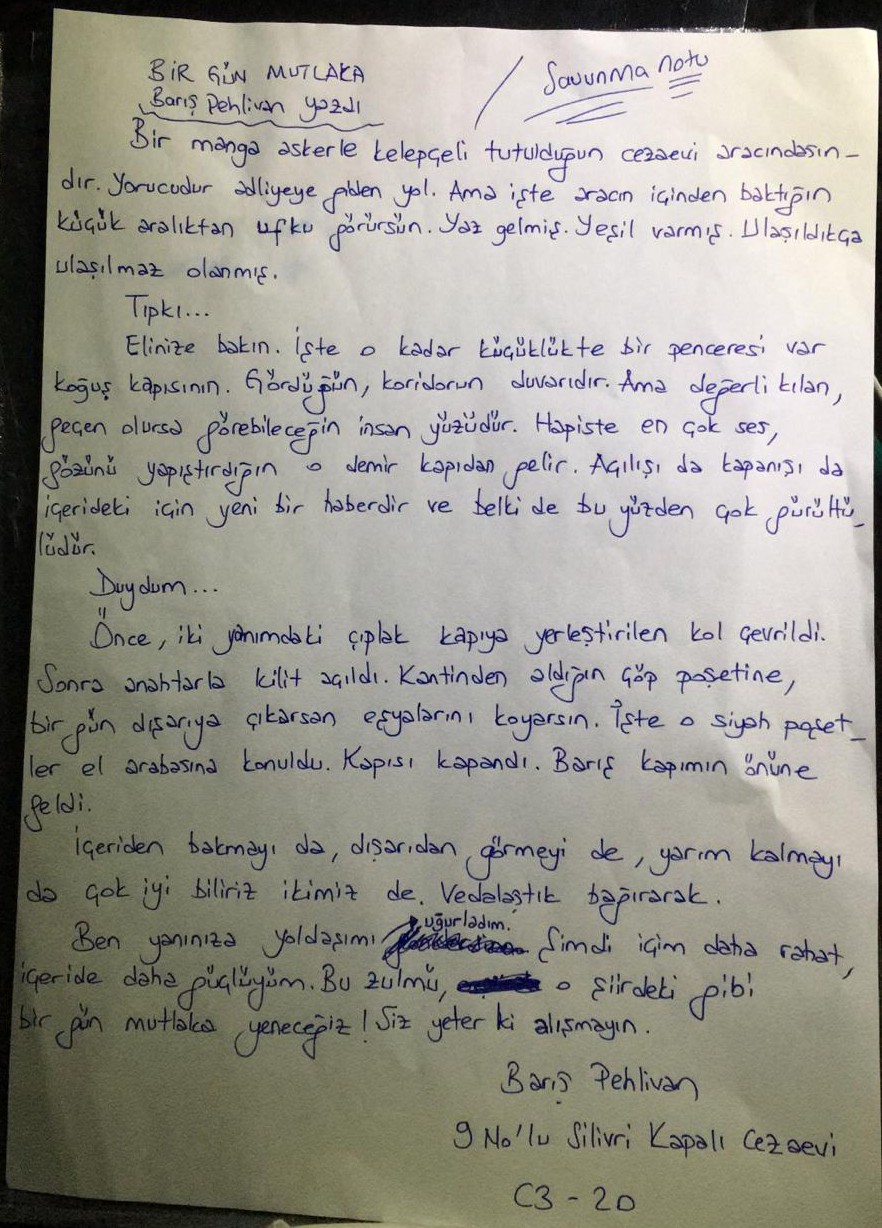 BİR GÜN MUTLAKA / Savunma notu
Barış Pehlivan yazdı
Bir manga askerle kelepçeli tutulduğun cezaevi aracındasın-
dır. Yorucudur adliyeye giden yol. Ama işte aracın içinden baktığın
küçük aralıktan ufku görürsün. Yaz gelmiş. Yeşil varmış. Ulaşıldıkça
ulaşılmaz olanmış.
Tıpkı...
Elinize bakın. İşte o kadar küçüklükte bir penceresi var
koğuş kapısının. Gördüğün, koridorun duvarıdır. Ama değerli kılan,
geçen olursa görebileceğin insan yüzüdür. Hapiste en çok ses,
gözünü yapıştırdığın o demir kapıdan gelir. Açılışı da kapanışı da
içerideki için yeni bir haberdir ve belki de bu yüzden çok gürültü-
lüdür.
Duydum...
Önce, iki yanımdaki çıplak kapıya yerleştirilen kol çevrildi.
Sonra anahtarla kilit açıldı. Kantinden aldığın çöp poşetine,
bir gün dışarıya çıkarsan eşyalarını koyarsın. İşte o siyah poşet-
ler el arabasına konuldu. Kapısı kapandı. Barış kapımın önüne
geldi.
İçeriden bakmayı da, dışarıdan görmeyi de, yarım kalmayı
da çok iyi biliriz ikimiz de. Vedalaştık bağırarak.
Ben yanınıza yoldaşımı uğurladım. Şimdi içim daha rahat,
içeride daha güçlüyüm. Bu zulmü, o şiirdeki gibi
bir gün mutlaka yeneceğiz! Siz yeter ki alışmayın.
Barış Pehlivan
9 No'lu Silivri Kapalı Cezaevi
C3 - 20